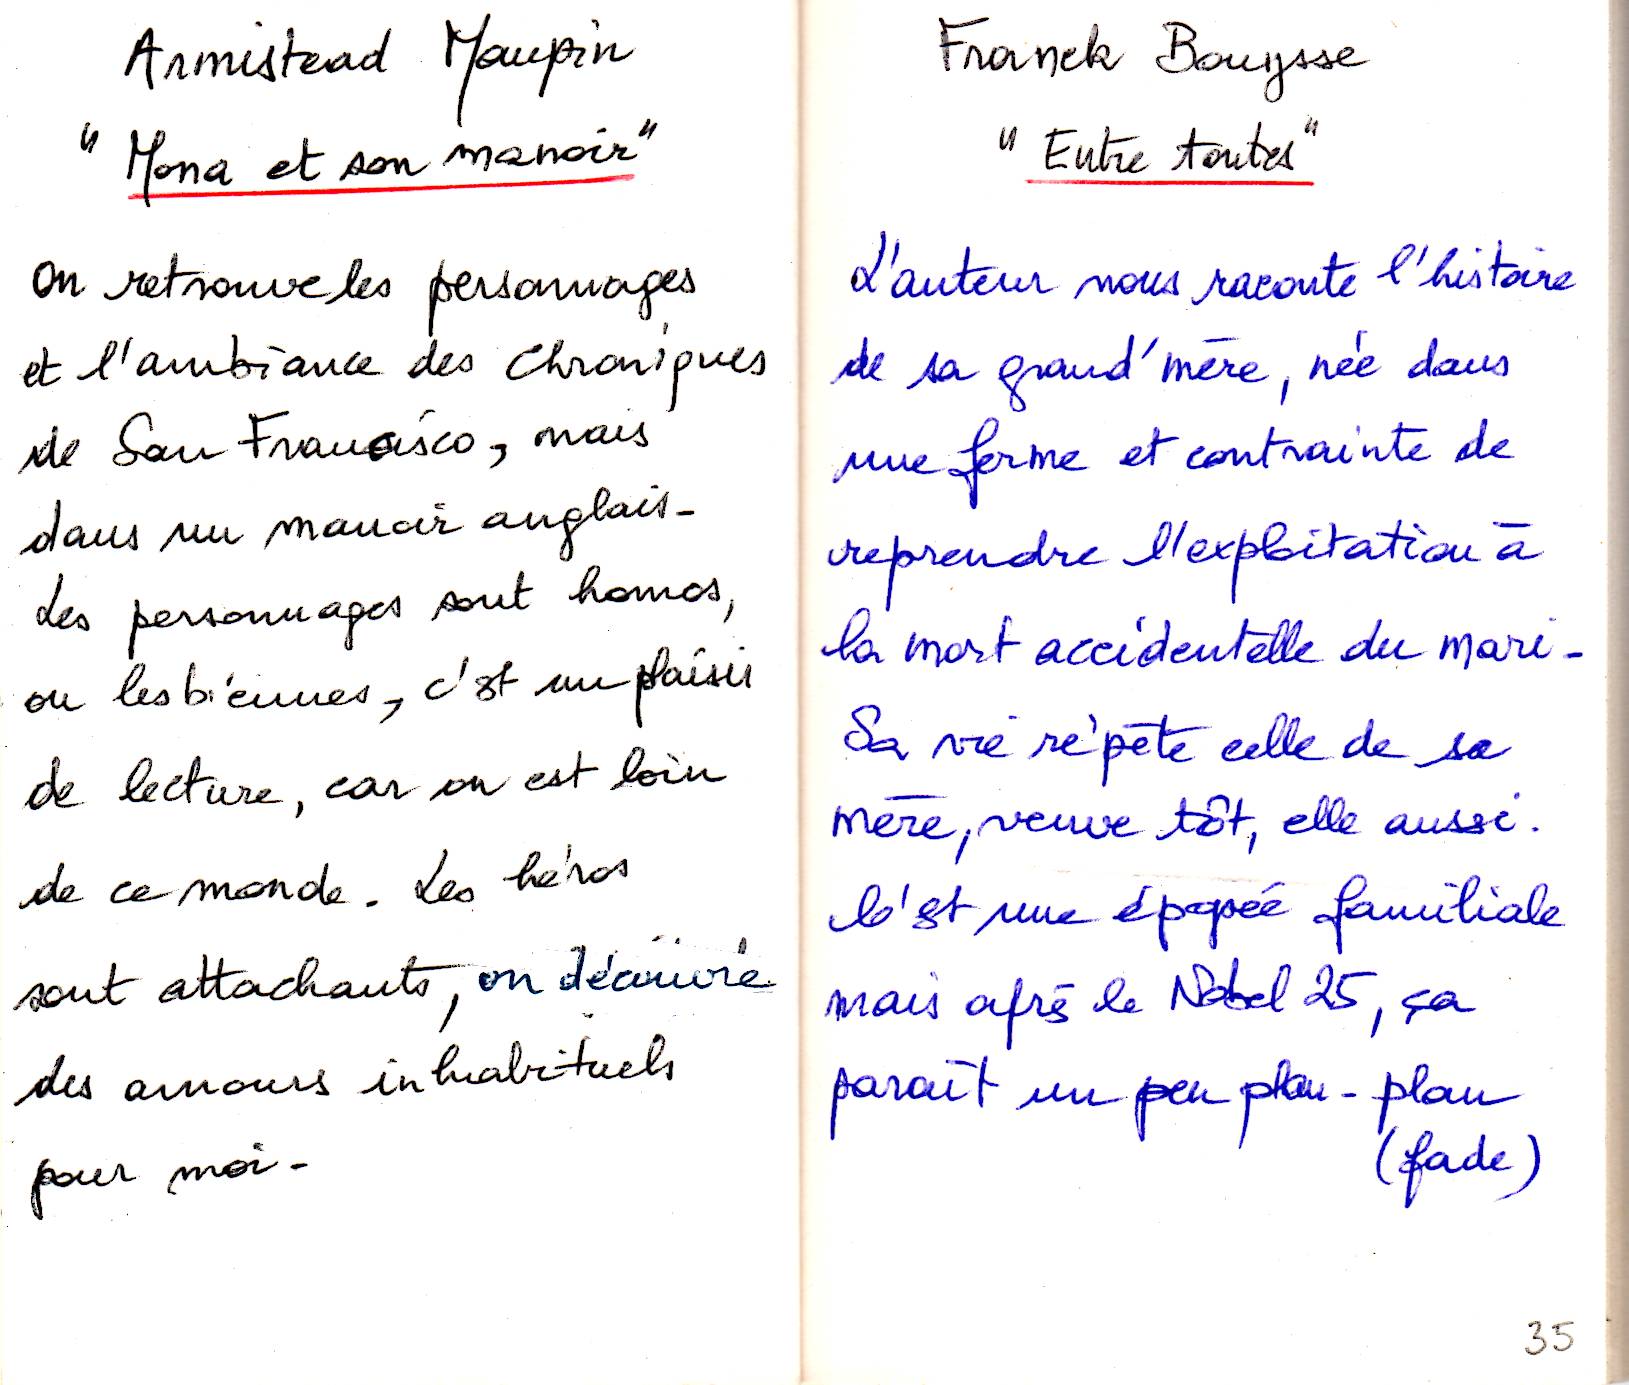 Armistead Maupin
"Mona et son manoir"
On retrouve les personnages
et l'ambiance des Chroniques
de San Francisco, mais
dans un manoir anglais -
Les personnages sont homos,
ou lesbiennes, c'est un plaisir
de lecture, car on est loin
de ce monde. Les héros
sont attachants, on découvre
des amours inhabituels
pour moi -
Franck Bouysse
"Entre toutes"
L'auteur nous raconte l'histoire
de sa grand'mère, née dans
une ferme et contrainte de
reprendre l'exploitation à
la mort accidentelle du mari -
Sa vie répète celle de sa
mère, veuve tôt, elle aussi.
C'est une épopée familiale
mais après le Nobel 25, ça
paraît un peu plan-plan
(fade)
35